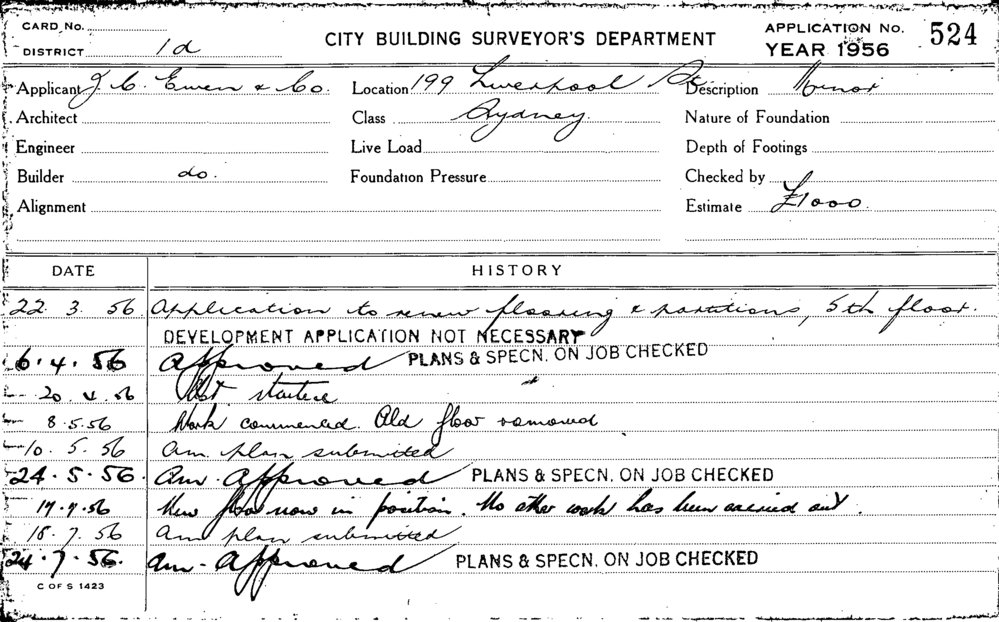 CARD No.
DISTRICT 1d
CITY BUILDING SURVEYOR'S DEPARTMENT
APPLICATION No. 524
YEAR 1956
Applicant J. C. Ewen & Co. Location 199 Liverpool St. Description Minor
Architect Class Sydney. Nature of Foundation
Engineer Live Load Depth of Footings
Builder do. Foundation Pressure Checked by
Alignment Estimate £1000.
DATE HISTORY
22. 3. 56 Application to renew flooring & partitions, 5th floor.
DEVELOPMENT APPLICATION NOT NECESSARY
6.4.56 Approved PLANS & SPECN. ON JOB CHECKED
20 4 56 Not started
8.5.56 Work commenced. Old floor removed
10. 5. 56 Am. plan submitted
24.5.56. Am. Approved PLANS & SPECN. ON JOB CHECKED
17.7.56 New floor now in position. No other work has been carried out.
18.7.56 Am plan submitted
24.7.56. Am. Approved PLANS & SPECN. ON JOB CHECKED
C OF S 1423